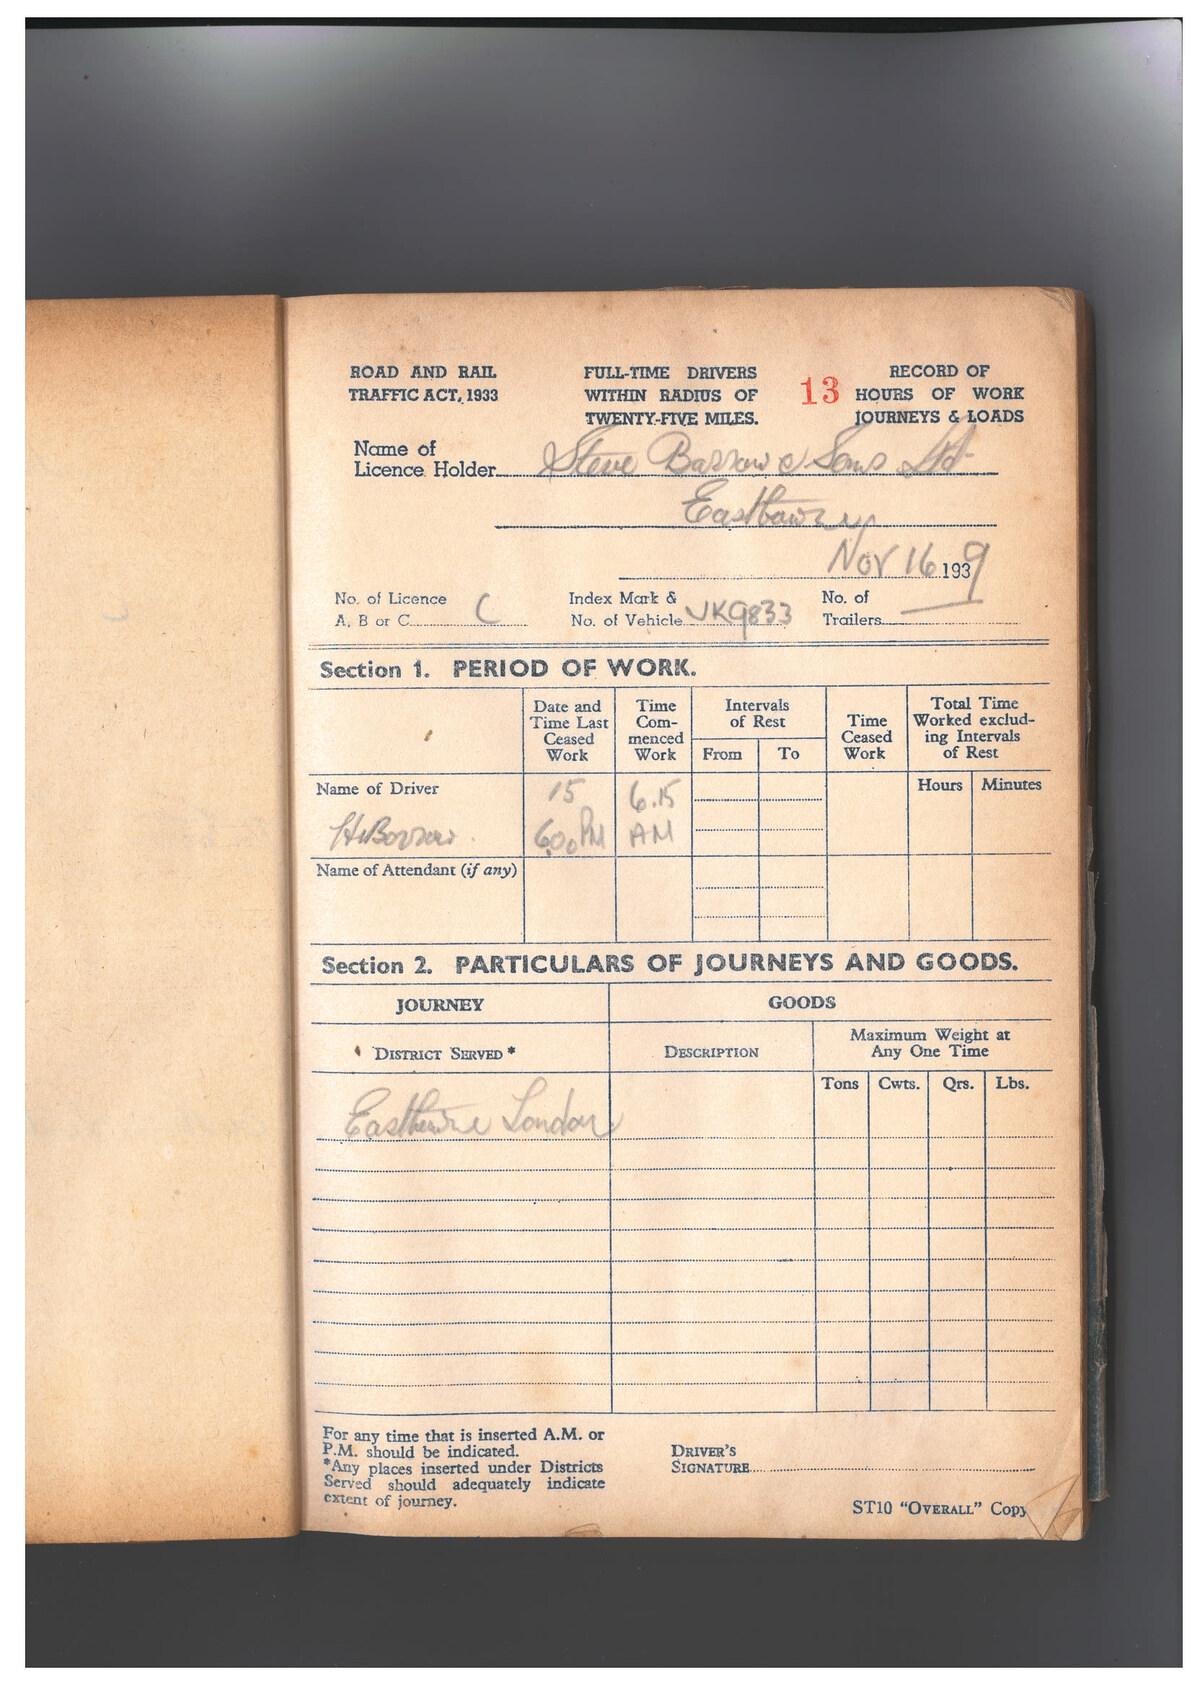 ROAD AND RAIL
TRAFFIC ACT, 1933
FULL-TIME DRIVERS
WITHIN RADIUS OF
TWENTY-FIVE MILES.
13
RECORD OF
HOURS OF WORK
JOURNEYS & LOADS
Name of
Licence Holder Steve Barrow & Sons Ltd
Nov 16 1939
No. of Licence
A, B or C C
Index Mark &
No. of Vehicle JK9833
No. of
Trailers
Section 1. PERIOD OF WORK.
Date and
Time Last
Ceased
Work
Time
Com-
menced
Work
Intervals
of Rest
From
To
Time
Ceased
Work
Total Time
Worked exclud-
ing Intervals
of Rest
Hours
Minutes
Name of Driver
15
6.15
6.00 PM
AM
Name of Attendant (if any)
Section 2. PARTICULARS OF JOURNEYS AND GOODS.
JOURNEY
GOODS
DISTRICT SERVED *
DESCRIPTION
Maximum Weight at
Any One Time
Tons Cwts. Qrs. Lbs.
London
For any time that is inserted A.M. or
P.M. should be indicated.
*Any places inserted under Districts
Served should adequately indicate
extent of journey.
DRIVER'S
SIGNATURE
ST10 "OVERALL" Copy